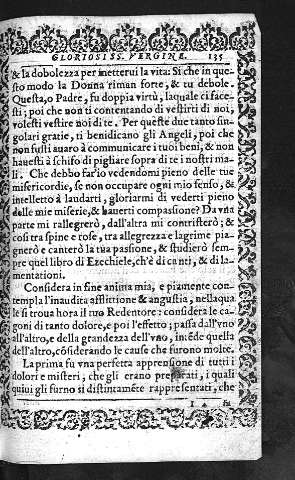 GLORIOSISS. VERGINE. 135
& la dobolezza per metterui la vita: Si che in que-
sto modo la Donna riman forte, & tu debole.
Questa, o Padre, fu doppia virtù, laquale ci face-
sti; poi che non ti contentando di vestirti di noi,
volesti vestire noi di te. Per queste due tanto sin-
golari gratie, ti benidicano gli Angeli, poi che
non fusti auaro à communicare i tuoi beni, & non
hauesti à schifo di pigliare sopra di te i nostri ma-
li. Che debbo far'io vedendomi pieno delle tue
misericordie, se non occupare ogni mio senso, &
intelletto à laudarti, gloriarmi di vederti pieno
delle mie miserie, & hauerti compassione? Da vna
parte mi rallegrerò, dall'altra mi contristerò; &
cosi tra spine e rose, tra allegrezza e lagrime pia-
gnerò e canterò la tua passione, & studierò sem-
pre quel libro di Ezechiele, ch'è di canti, & di la-
mentationi.
Considera in fine anima mia, e piamente con-
templa l'inaudita afflittione & angustia, nella qua
le si troua hora il tuo Redentore: considera le ca-
goni di tanto dolore, e poi l'effetto; passa dall'vno
all'altro, e della grandezza dell'vno, intēde quella
dell'altro, cōsiderando le cause che furono molte.
La prima fu vna perfetta apprensione di tutti i
dolori e misteri, che gli erano preparati, i quali
quiui gli furno si distintamēte rappresentati, che
I 4